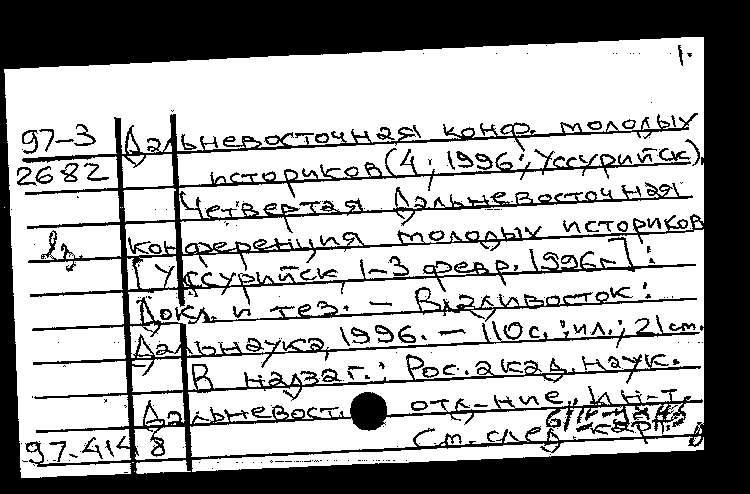 1.
97-3
2682
Дальневосточная конф. молодых
историков (4; 1996; Уссурийск).
Четвертая Дальневосточная
конференция молодых историков
[Уссурийск, 1-3 февр. 1996г.] :
Докл. и тез. - Владивосток :
Дальнаука, 1996. - 110с. : ил.; 21см.
В надзаг.: Рос. акад. наук.
Дальневост. отд-ние, Ин-т
См. след. карт.
97-4148